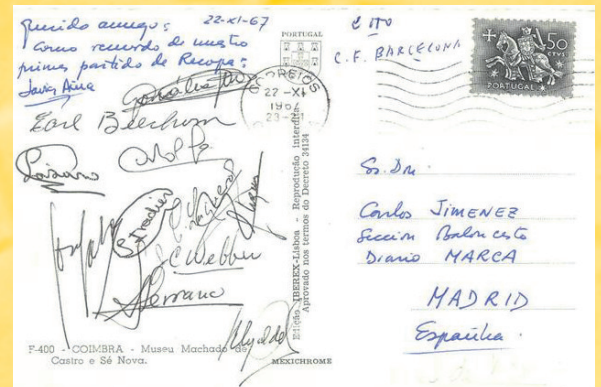 Querido amigo: 22-XI-67
Como recuerdo de nuestro
primer partido de Recopa:
Javier Aína
González
Earl Beechum
Estradier
C Webber
Serrano
F-400 - COIMBRA - Museu Machado de
Castro e Sé Nova.
MEXICHROME
Edição IBEREX-Lisboa - Reprodução interdita
Aprovado nos termos do Decreto 34134
PORTUGAL
CORREIOS
22 -XI
1967
23-2
C.F. BARCELONA
50
CTVS
PORTUGAL
Sr. Dn.
Carlos JIMENEZ
Seccion Baloncesto
Diario MARCA
MADRID
España.